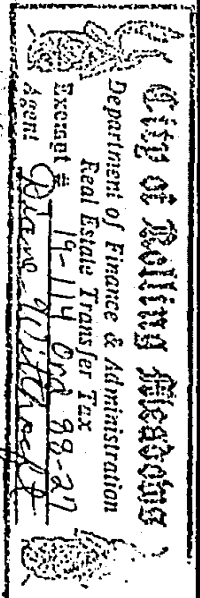 City of Rolling Meadows
Department of Finance & Administration
Real Estate Transfer Tax
Exempt # 19-114 Ord 88-27
Agent Diane